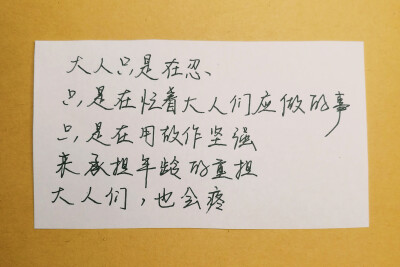 大人只是在忍、
只是在忙着大人们应做的事
只是在用故作坚强
来承担年龄的重担
大人们，也会疼